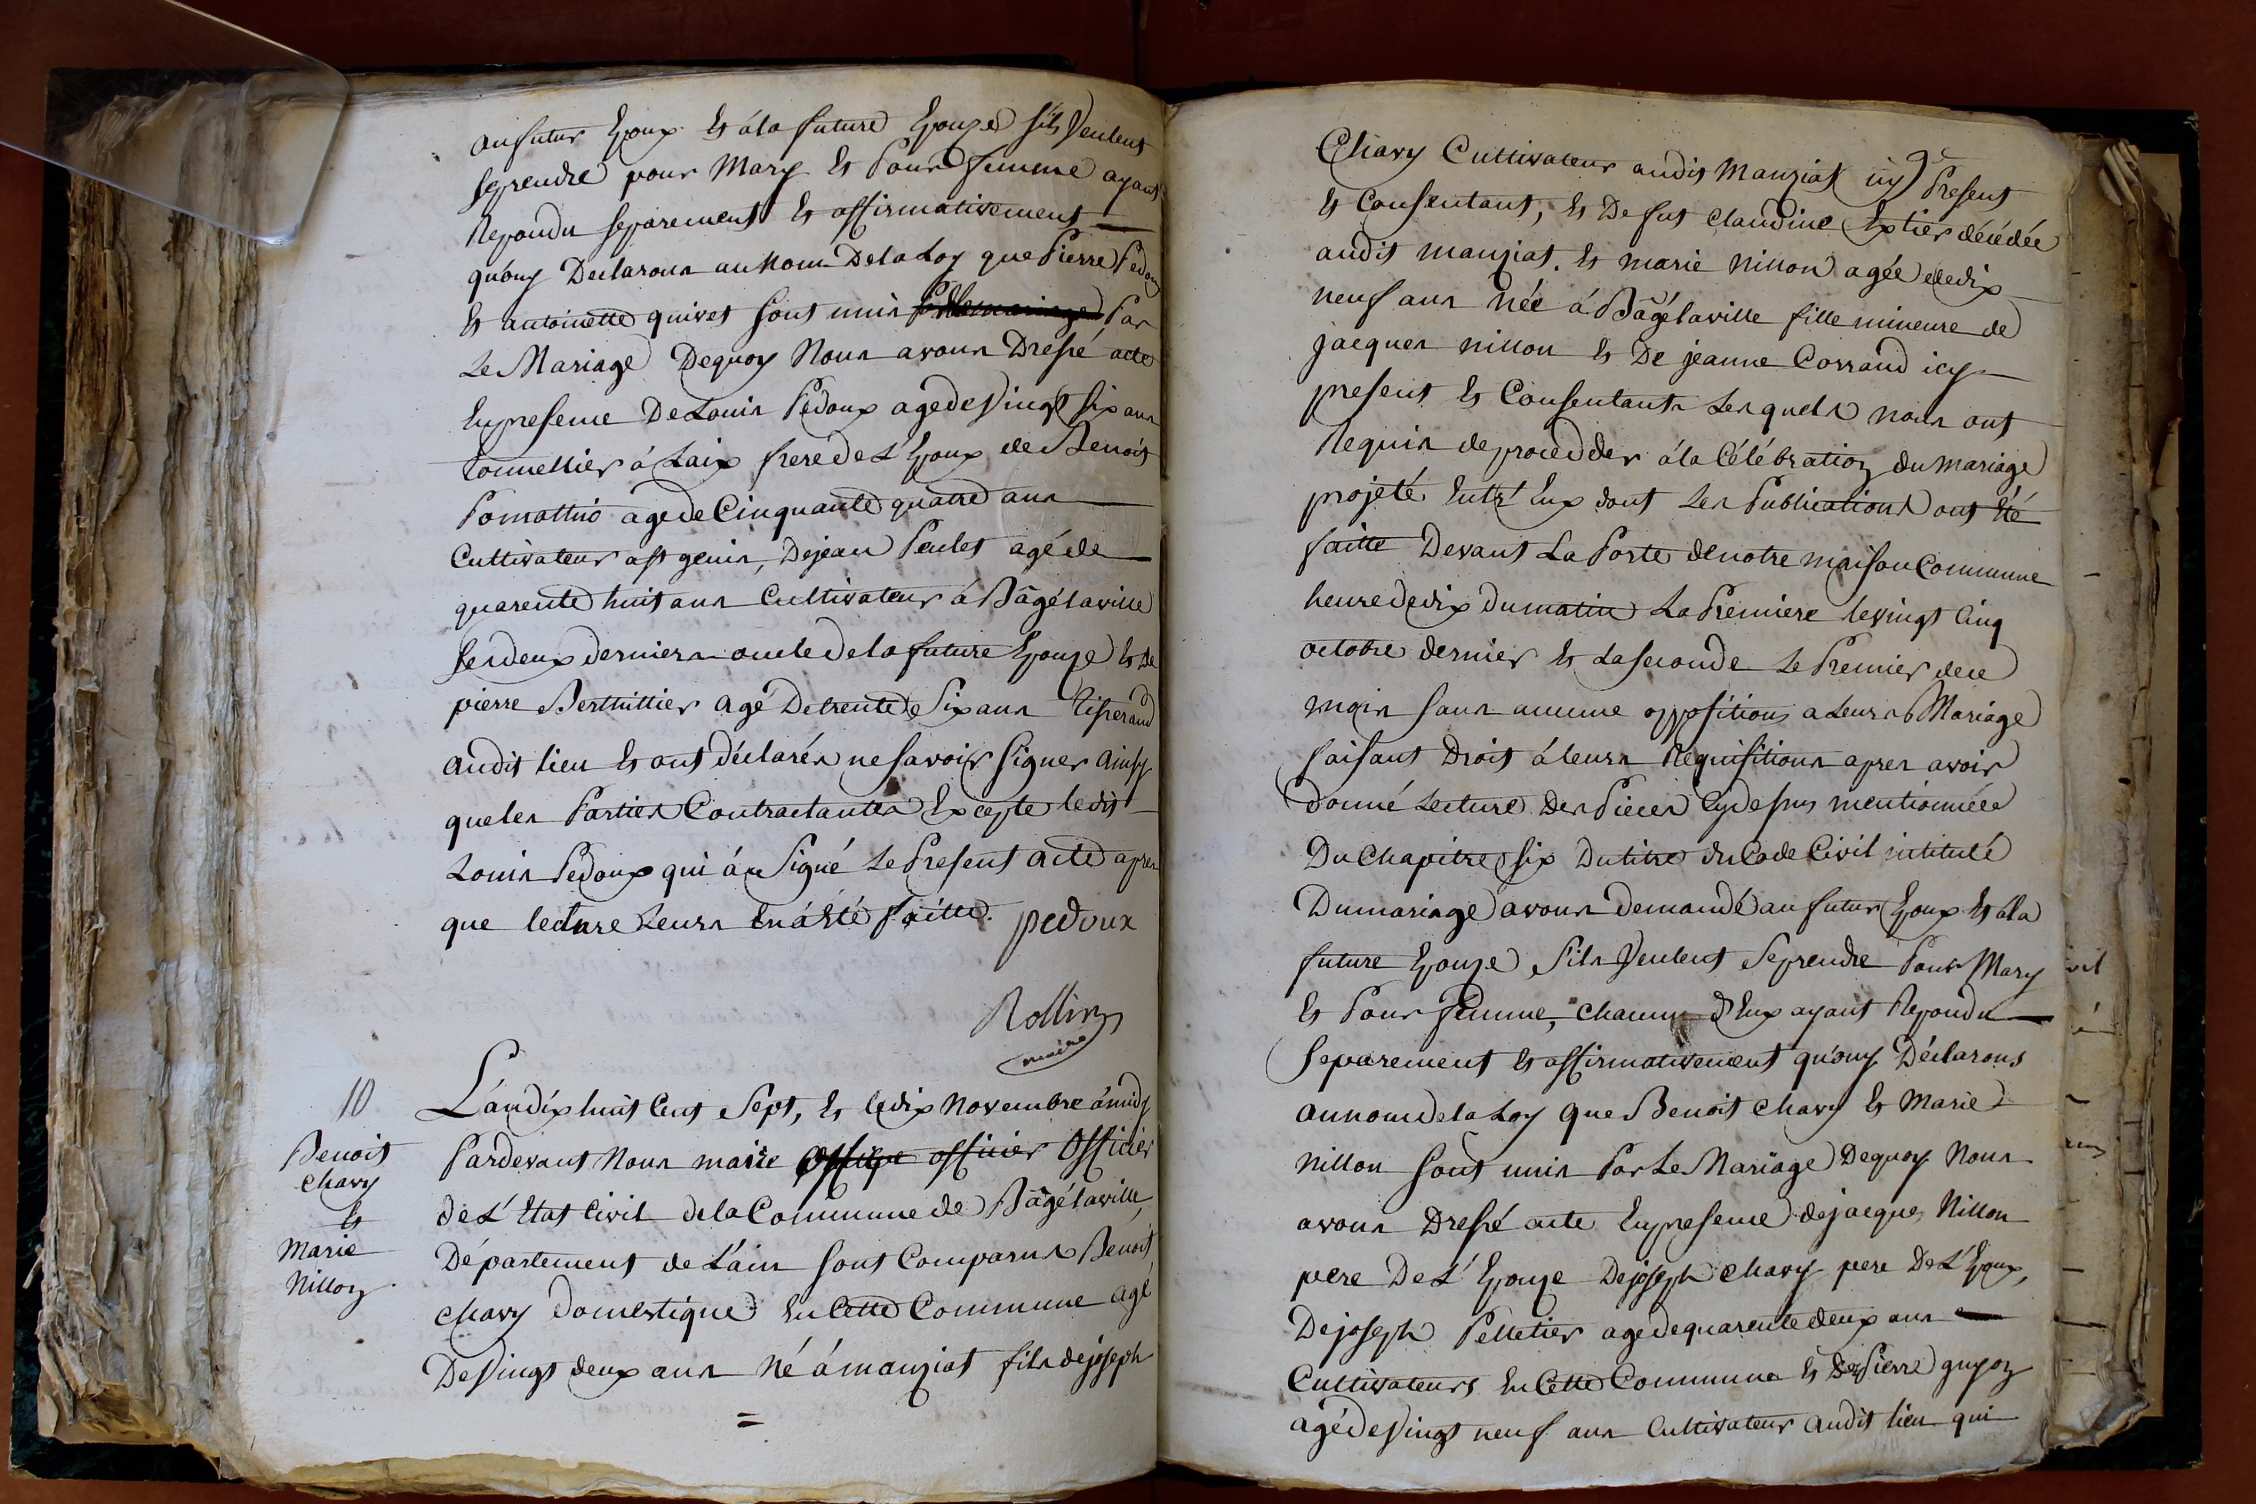 au futur Epoux Et á la future Epouze s'ils veulent
se prendre pour Mary Et Pour femme ayant
Repondu separement Et affirmativement
qu'ouy Declarons au Nom De la Loy que Pierre Pedoux
Et antoinette quivet sont unis Par
Le Mariage De quoy Nous avons Dressé acte
En presence De Louis Pedoux age de vingt six ans
tonnellier á Laix frere de L'Epoux de Benoit
age de Cinquante quatre ans
Cultivateur a st genis, De jean Peulet agé de
quarente huit ans Cultivateur á Bâgé la ville
Les deux derniers oncle de la future Epouze Et De
pierre Berthillier agé De trente Six ans tisserand
audit lieu Et ont déclarés ne savoir signer ainsy
que les Parties Contractantes Excepté ledit
Louis Pedoux qui á Signé Le Present acte apres
que lecture Leurs En á été faitte. pedoux
Rollin
maire
10
Benoit
Chavy
Et
Marie
Nillon
L'an dix huit Cent Sept, Et le dix Novembre á midy
Pardevant Nous maire officier Officier
de L'Etat Civil de la Commune de Bâgé la ville,
Département de L'ain sont Comparus Benoit
Chavy domestique En Cette Commune agé
De vingt deux ans Né á manziat fils de joseph
=
Chavy Cultivateur audit Manziat icy Present
Et Consentant, Et De fut Claudine Extier décédée
audit manziat. Et marie Nillon agée de dix
neuf ans Née á Bâgé la ville fille mineure de
jacques nillon Et De jeanne Corrand icy
present Et Consentants Les quels nous ont
Requis de procedder á la Célébration du mariage
projeté Entr'Eux dont Les Publications ont Eté
faitte Devant La Porte de notre maison Commune
heure de dix du matin La Premiere le vingt Cinq
octobre dernier Et La seconde Le Premier de ce
mois sans aucune opposition a Leurs Mariage
faisant Droit á leurs Requisitions apres avoir
donné Lecture Des Pieces Cy dessus mentionnées
Du Chapitre six Du titre du Code Civil intitulé
Du mariage avons demandé au futur Epoux Et á la
future Epouze s'ils veulent Se prendre Pour Mary
Et Pour femme, chacun d'Eux ayant Repondu
separement Et affirmativement qu'ouy Déclarons
au nom de la Loy que Benoit Chavy Et Marie
Nillon sont unis Par Le Mariage De quoy Nous
avons Dressé acte En presence de jacques Nillon
pere De L'Epouze De joseph Chavy pere De L'Epoux,
De joseph Pelletier age de quarente deux ans
Cultivateurs En Cette Commune Et De Pierre guyon
agé de vingt neuf ans Cultivateur audit lieu qui